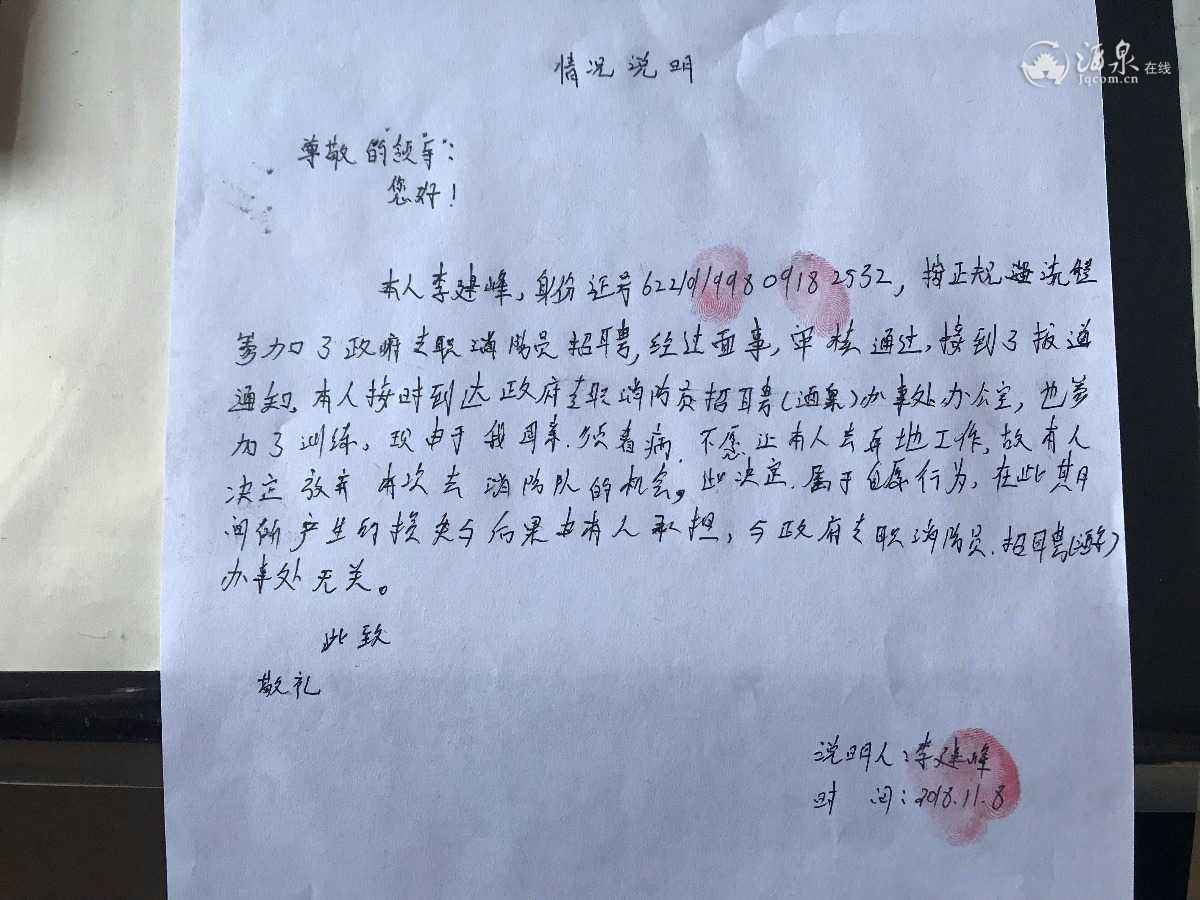 酒泉在线
Jqcom.cn
情况说明
尊敬的领导：
您好！
本人李建峰，身份证号622101199809182532，按正规
参加了政府专职消防员招聘，经过面事，审核通过，接到了报道
通知。本人按时到达政府专职消防员招聘（酒泉）办事处办公室，也参
加了训练。现由于我母亲须看病，不愿让本人去异地工作，故本人
决定放弃本次去消防队的机会。此决定属于自愿行为，在此其月
间所产生的损失与后果由本人承担，与政府专职消防员招聘（酒泉）
办事处无关。
此致
敬礼
说明人：李建峰
时间：2018.11.8